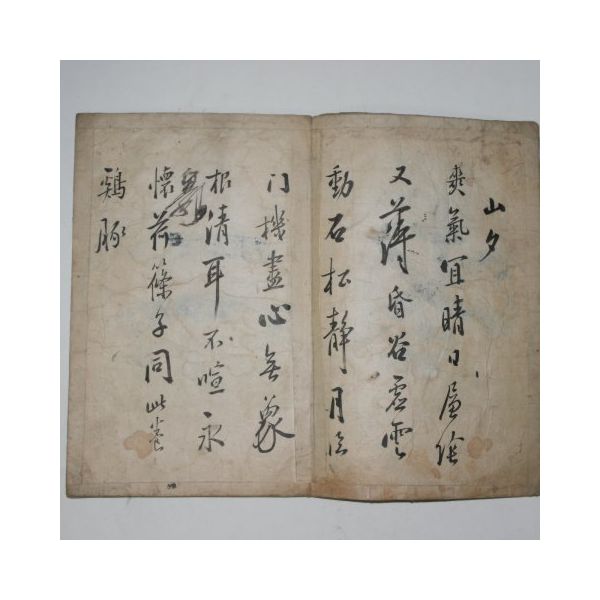 山夕
爽氣宜晴日層陰
又薄昏谷虛雲
動石松靜月
门機盡心無象
根清耳不喧永
懷荷篠子同此養
鷄豚